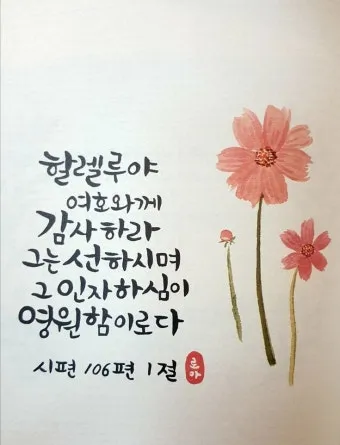 할렐루야
여호와께
감사하라
그는 선하시며
그 인자하심이
영원함이로다
시편 106편 1절
로아